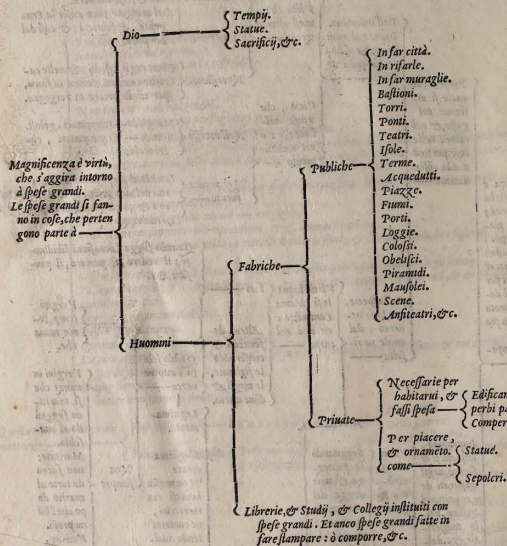 Magnificenza è virtù,
che s'aggira intorno
à ſpeſe grandi.
Le ſpeſe grandi ſi fan-
no in coſe, che perten
gono parte à
Dio
Tempij.
Statue.
Sacrificij, &c.
Huomini
Fabriche
Publiche
In far città.
In rifarle.
In far muraglie.
Baſtioni.
Torri.
Ponti.
Teatri.
Iſole.
Terme.
Acquedutti.
Piazze.
Fiumi.
Porti.
Loggie.
Coloſſi.
Obeliſci.
Piramidi.
Mauſolei.
Scene.
Anfiteatri, &c.
Priuate
Neceſſarie per
habitarui, &
faſſi ſpeſa
Edifican
perbi pa
Comper
Per piacere,
& ornamẽto.
come
Statue.
Sepolcri.
Librerie, & Studij, & Collegij inſtituiti con
ſpeſe grandi. Et anco ſpeſe grandi fatte in
fare ſtampare: ò comporre, &c.